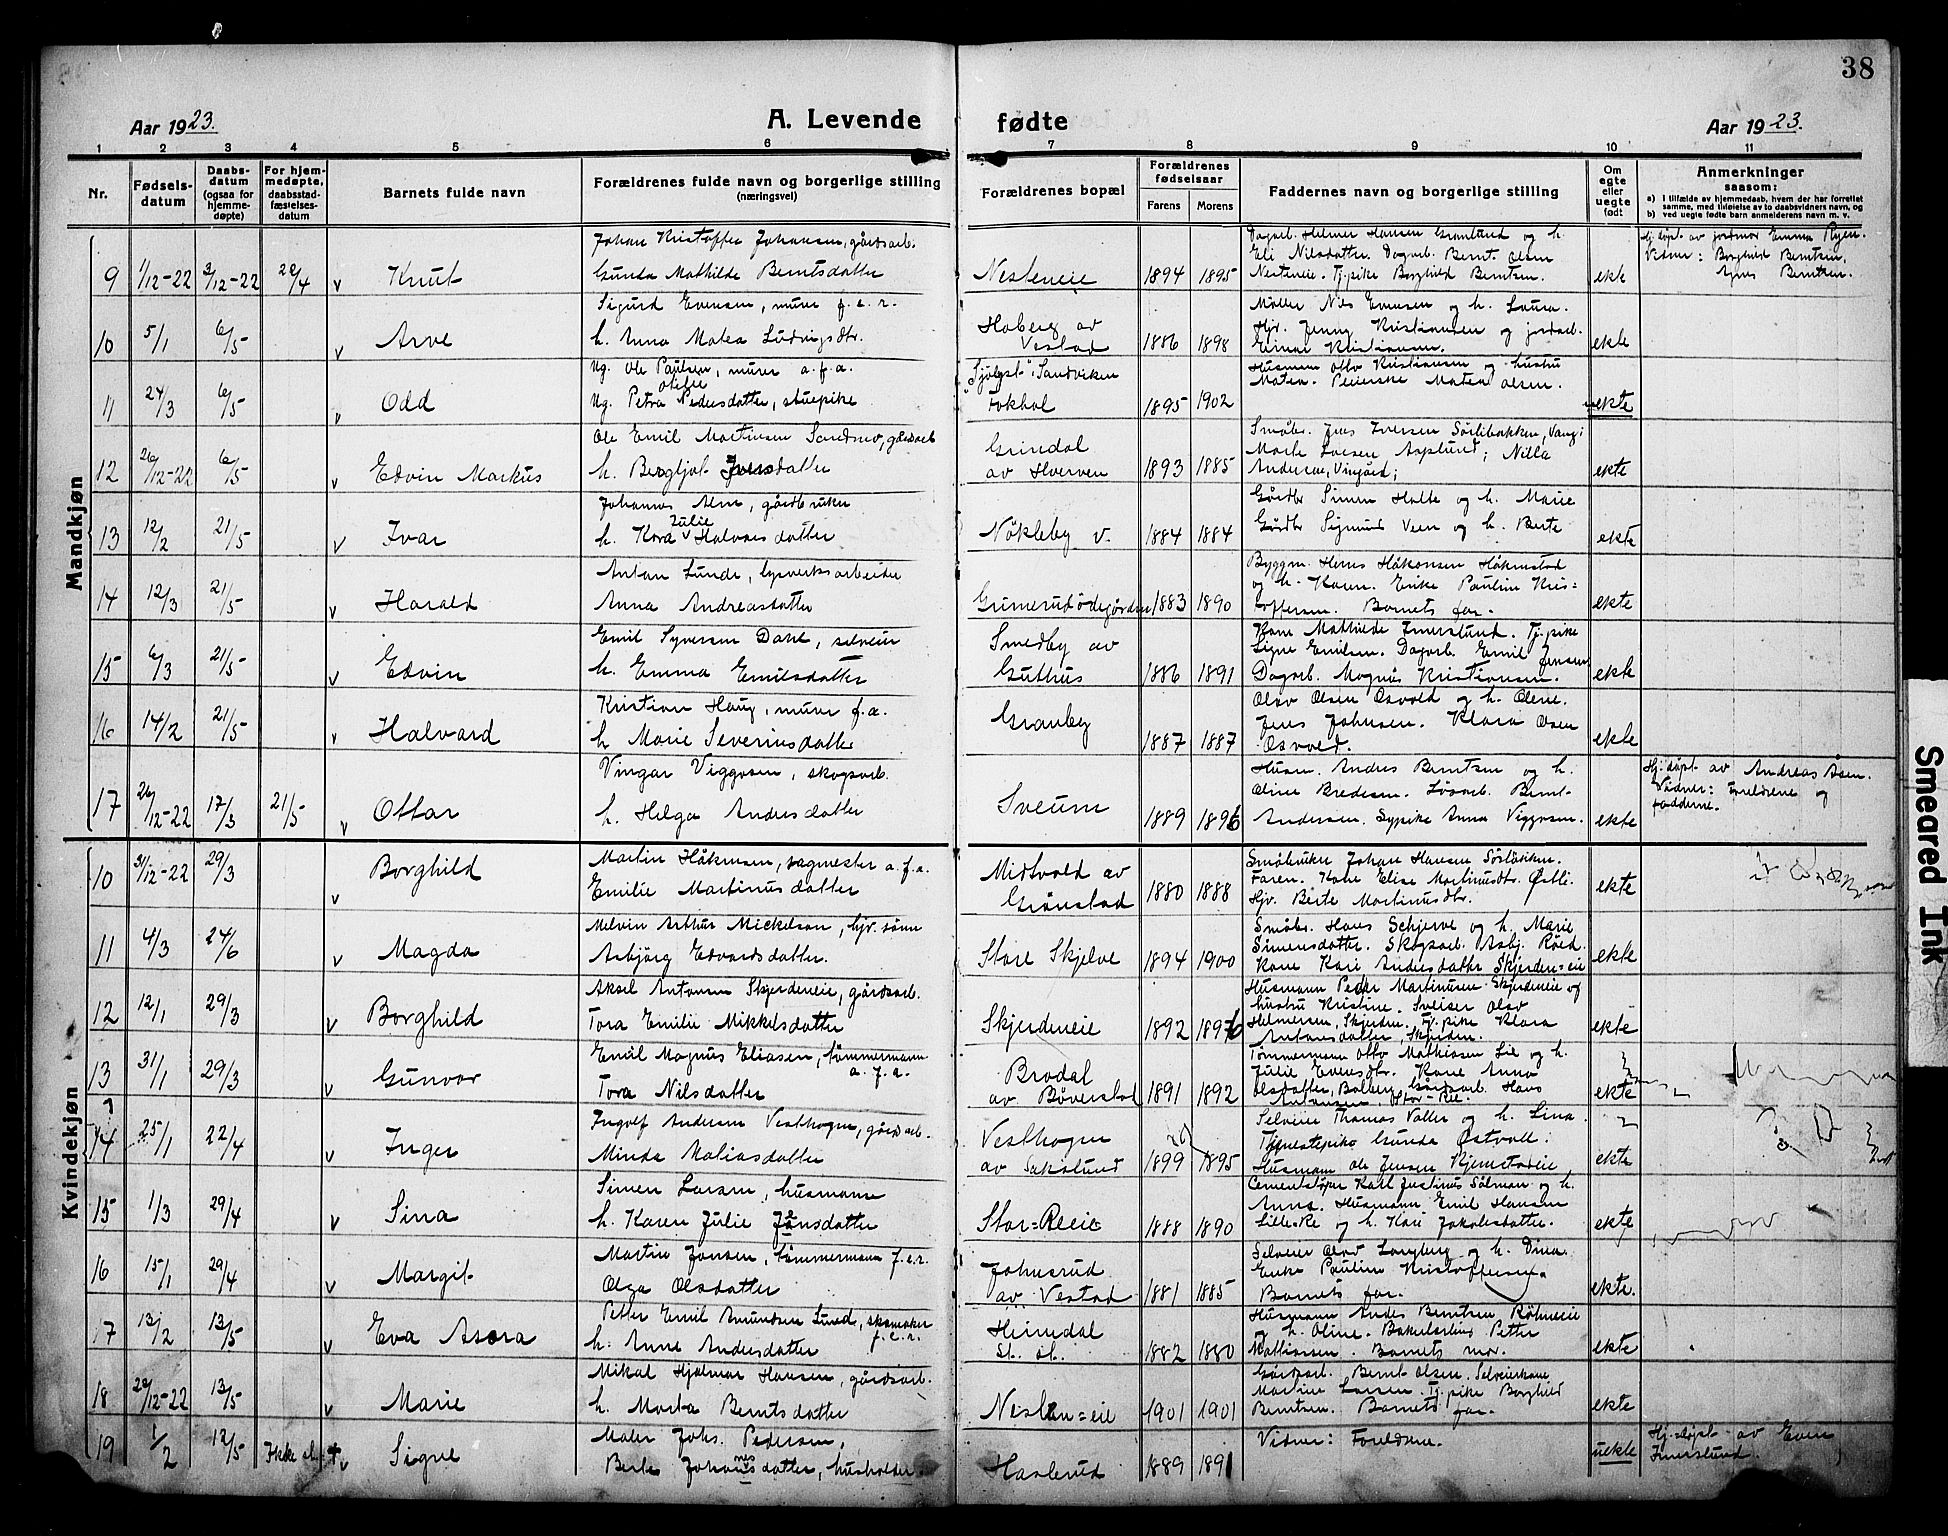 38
Aar 1923.
A. Levende
fødte
Aar 1923.
1 2 3 4 5 6 7 8 9 10 11
Nr.
Fødsels-
datum
Daabs-
datum
(ogsaa for
hjemme-
døpte)
For hjem-
medøpte,
daabsstad-
fæstelses-
datum
Barnets fulde navn
Forældrenes fulde navn og borgerlige stilling
(næringsvei)
Forældrenes bopæl
Forældrenes
fødselsaar
Farens Morens
Faddernes navn og borgerlige stilling
Om
egte
eller
uegte
født
Anmerkninger
saasom:
a) I tilfælde av hjemmedaab, hvem der har forrettet
samme, med tilføielse av to daabsvidners navn, og
b) ved uegte fødte barn anmelderens navn m. v.
Mandkjøn
9 1/12-22 3/12-22 22/4 v Knut
Johan Kristoffer Johansen, gårdsarb.
Gunda Mathilde Berntsdatter
Nesteneie 1894 1895
Dagarb. Helmer Hansen Granlund og h.
Eli Nilsdatter. Dagarb. Bernt Olsen
Nesteneie. Tj.pike Borghild Berntsen.
ekte
Hj.døpt av jordmor Emma Ryen.
Vidner: Borghild Berntsen,
Agnes Berntsen.
10 5/1 6/5 v Arve
Sigurd Evensen, murer f.e.r.
h. Anna Matea Ludvigsdtr.
Hoberg av
Vestad
1886 1898
Møller Nils Evensen og h. Laura.
Hjv. Jenny Kristiansen og jordarb.
Einar Kristiansen.
ekte
11 24/3 6/5 v Odd
Ug. Ole Paulsen, murer a.f.a.
Ug. Petra Pedersdatter, stuepike
"Sjølyst" i Sandviken
Fokhol
1895 1902
Husmann Otto Kristiansen og hustru
Matea. Peierske Matea Olsen.
uekte
12 26/12-22 6/5 v Edvin Markus
Ole Emil Martinsen Sandmo, gårdsarb
h. Bergljot Iversdatter
Grindal
av Hverven
1893 1885
Småbr. Jens Iversen Sørlibakken, Vang;
Marte Larsen Asplund; Nilla
Andersen, Vingård;
ekte
13 12/2 21/5 v Ivar
Johannes Alm, gårdbruker
h. Kora Julie Halvorsdatter
Nøkleby v. 1884 1884
Gårdbr Simen Holte og h. Marie
Gårdbr Sigmund Veen og h. Berte
ekte
14 12/3 21/5 v Harald
Anton Lunde, lysverksarbeider
Anna Andreasdatter
Grimerudødegården 1883 1890
Byggm. Herns Håkonsen Håkenstad
og h. Karen. Enke Pauline Kris-
toffersen. Barnets far.
ekte
15 6/3 21/5 v Edvin
Emil Syversen Dahl, selveier
h. Emma Emilsdatter
Smedby av
Guthus
1886 1891
Kone Mathilde Imerslund. Tj.pike
Signe Emilsen. Dagarb. Emil Jensen
Dagarb. Magnus Kristiansen.
ekte
16 14/2 21/5 v Halvard
Kristian Haug, murer f.a.
h Marie Severinsdatter
Granby 1887 1887
Olav Olsen Osvold og h. Olene.
Jens Johnsen. Klara Olsen
Osvold.
ekte
17 26/12-22 17/3 21/5 v Ottar
Vingar Viggosen, skogsarb.
h. Helga Andersdatter
Sveum 1889 1896
Husm. Andres Berntsen og h.
Oline Bredesen. Løsarb. Bernt
Andersen. Sypike Anna Viggosen.
ekte
Hj.døpt av Andreas Åsen.
Vidner: Foreldrene og
fadderne.
Kvindekjøn
10 31/12-22 29/3 v Borghild
Martin Håkensen, sagmester a.f.a.
Emilie Martinusdatter
Midtvold av
Grønstad
1880 1888
Småbruker Johan Hansen Sørløkken.
Faren. Kone Elise Martinusdtr. Østli.
Hjv. Berte Martinusdtr.
ekte
11 4/3 24/6 v Magda
Melvin Arthur Mickelson, hjv. sønn
Asbjørg Edvardsdatter.
Store Skjelve 1894 1900
Småbr. Hans Schjerve og h. Marie
Simensdatter. Skogsarb. Asbj. Røed.
Kone Kari Andersdatter Skjerden=eie
ekte
12 12/1 29/3 v Borghild
Aksel Antonsen Skjerdeneie, gårdsarb.
Tora Emilie Mikkelsdatter
Skjerdeneie 1892 1896
Husmann Peder Martinusen Skjerdeneie og
hustru Kristine. Sveiser Olav
Helmersen, Skjerden. Tj.pike Klara
Antonsdatter, Skjerden.
ekte
13 31/1 29/3 v Gunvor
Emil Magnus Eliasen, tømmermann
a.f.a.
Tora Nilsdatter
Brodal
av Bøverstad
1891 1892
Tømmermann Otto Mathiasen Lie og h.
Julie Evensdtr. Kone Anna
Olsdatter, Balberg. Gårdsarb. Hans
Antonsen Stor-Ree.
ekte
14 25/1 22/4 v Inger
Ingolf Andersen Vesthagen, gårdsarb.
Minda Matiasdatter
Vesthagen
av Sakslund
1899 1895
Selveier Thomas Valler og h. Lina.
Tjenestepike Gunda Østvoll.
Husmann Ole Jensen Kjemstadeie,
ekte
15 1/3 29/4 v Sina
Simen Larsen, husmann
h. Karen Julie Jønsdatter
Stor=Reeie 1888 1890
Cementstøper Karl Justinus Sålman og h.
Anna. Husmann Emil Hansen
Lille-Re og h. Kari Jakobsdatter.
ekte
16 15/1 29/4 v Margit
Martin Jonsen, tømmermann f.e.r.
Olga Olsdatter
Johnsrud
av Vestad
1881 1885
Selveier Olav Langberg og h. Dina.
Enke Pauline Kristoffersen.
Barnets far.
ekte.
17 13/2 13/5 v Eva Asora
Petter Emil Amundsen Lund, skomaker
f.e.r.
h. Anne Andersdatter
Heimdal
St. ol.
1882 1880
Husmann Andes Berntsen Røhneeie
og h. Oline. Bakerlærling Petter
Mathiasen. Barnets mor.
ekte
18 28/12-22 13/5 v Marie
Mikal Hjalmar Hansen, gårdsarb.
h. Marta Berntsdatter
Nesten=eie 1901 1901
Gårdsarb. Bernt Olsen. Selveierkone
Martine Larsen. Tj.pike Borghild
Berntsen. Barnets far.
ekte
19 1/2 12/5 Ikke st. † v Signe
Maler Johs. Pedersen,
Berte Johannesdatter, husholder
Haslerud 1889 1891
Vidner: Foreldrene.
uekte
Hj.døpt av Even
Imerslund.
Smeared Ink